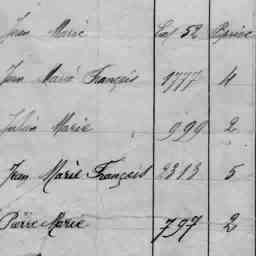 Jean Marie Cat 52 Brieuc
Jean Marie François 1777 4
Julien Marie 999 2
Jean Marie François 2313 5
Pierre Marie 797 2